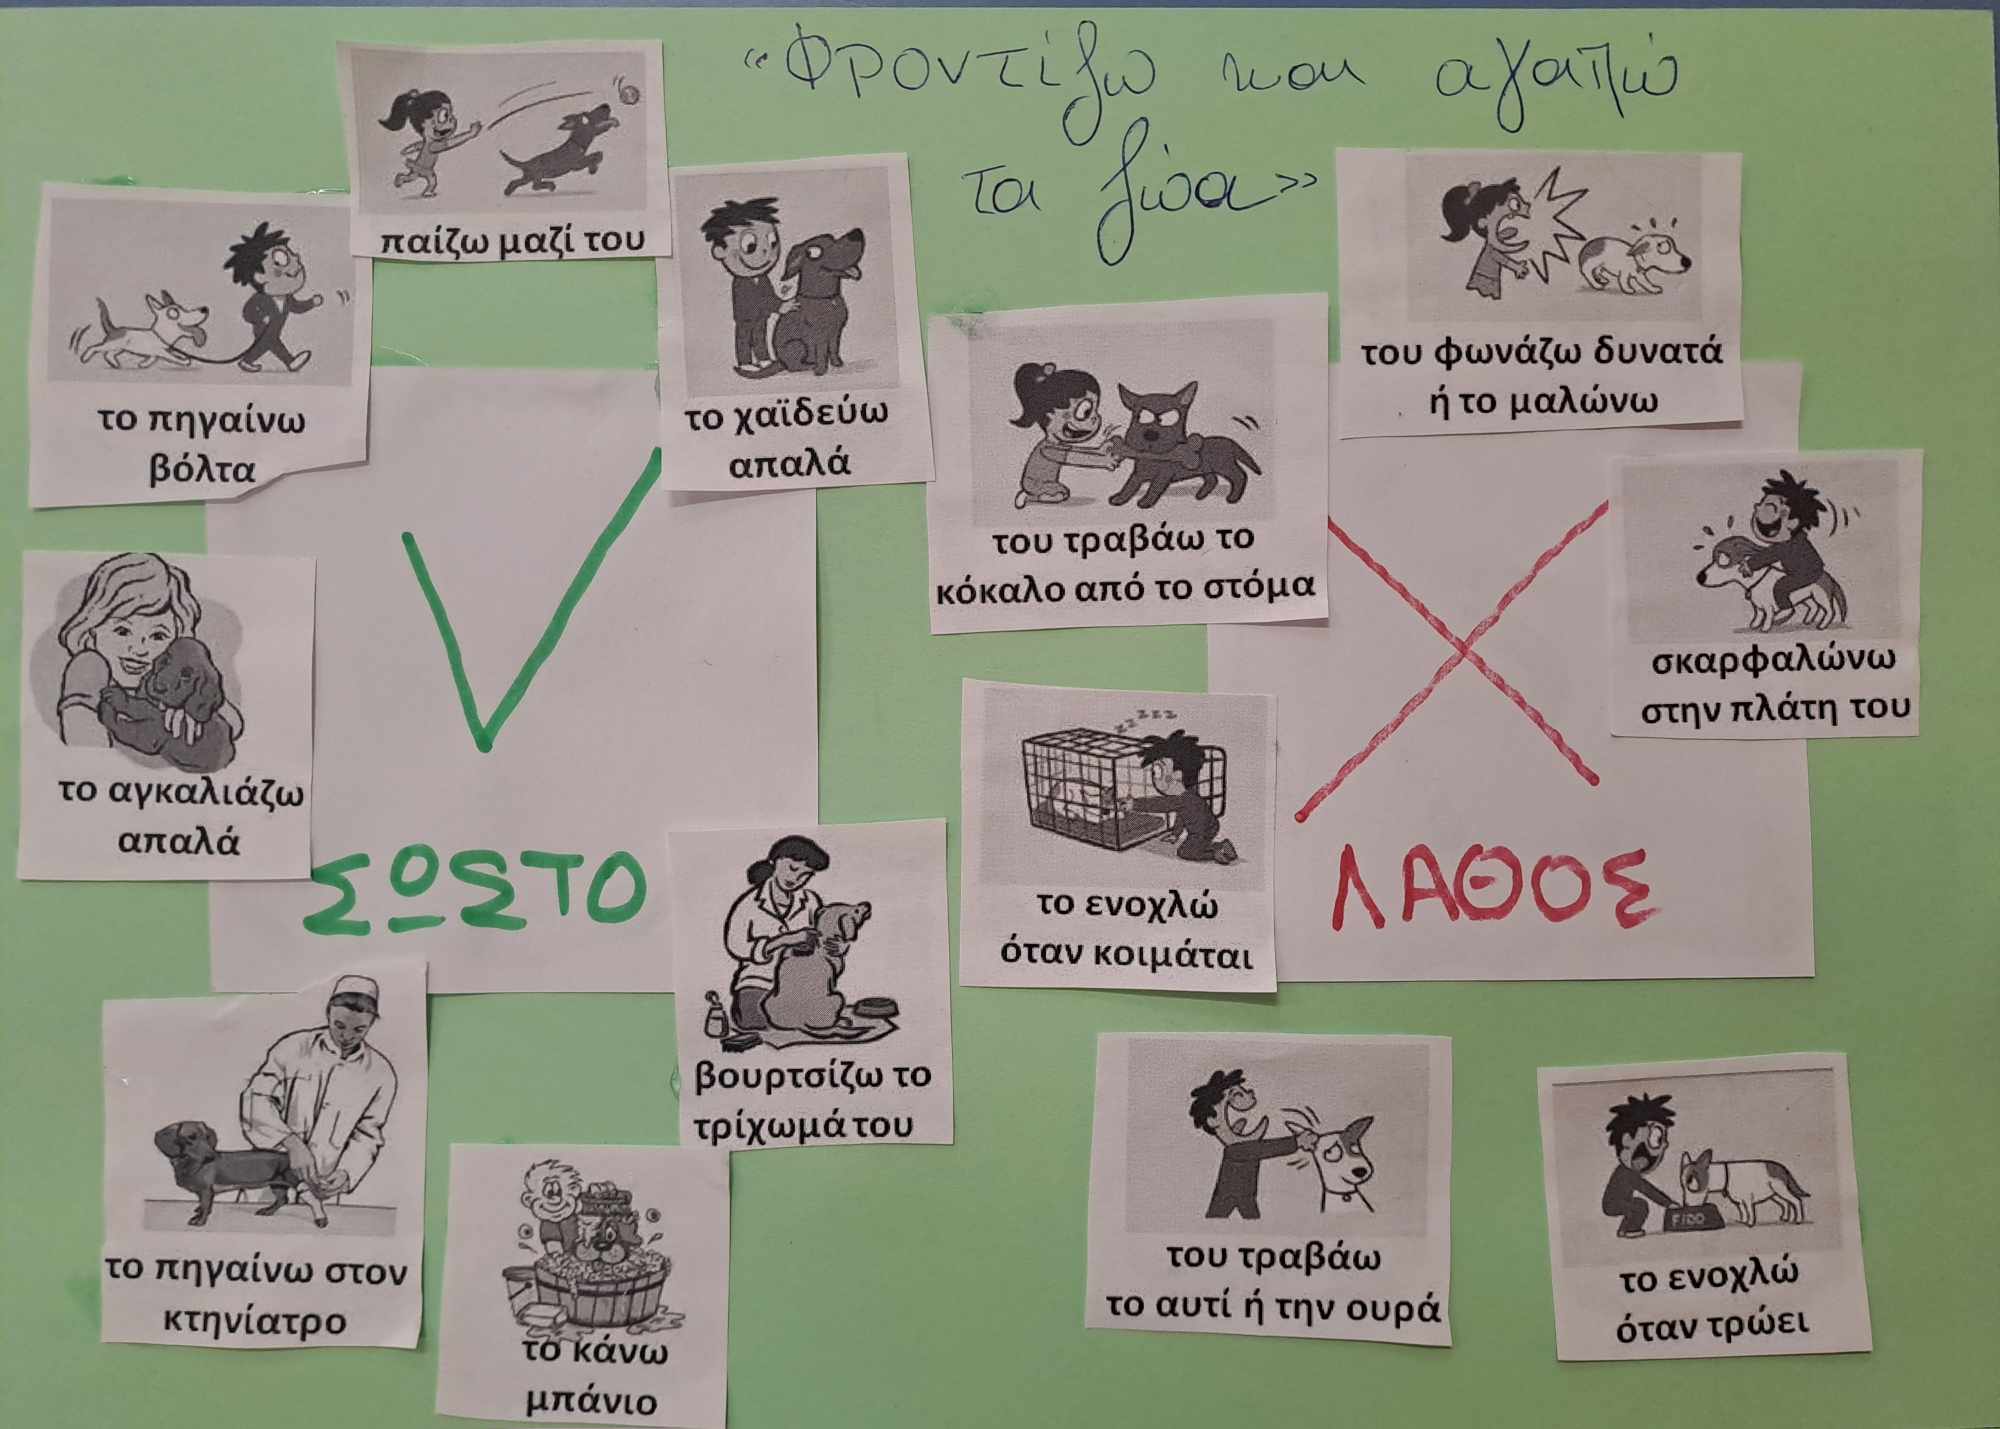 «Φροντίζω και αγαπώ
τα ζώα»
παίζω μαζί του
το πηγαίνω
βόλτα
το χαϊδεύω
απαλά
το αγκαλιάζω
απαλά
ΣΩΣΤΟ
βουρτσίζω το
τρίχωμά του
το πηγαίνω στον
κτηνίατρο
το κάνω
μπάνιο
του φωνάζω δυνατά
ή το μαλώνω
του τραβάω το
κόκαλο από το στόμα
σκαρφαλώνω
στην πλάτη του
zzzzz
το ενοχλώ
όταν κοιμάται
ΛΑΘΟΣ
του τραβάω
το αυτί ή την ουρά
FIDO
το ενοχλώ
όταν τρώει